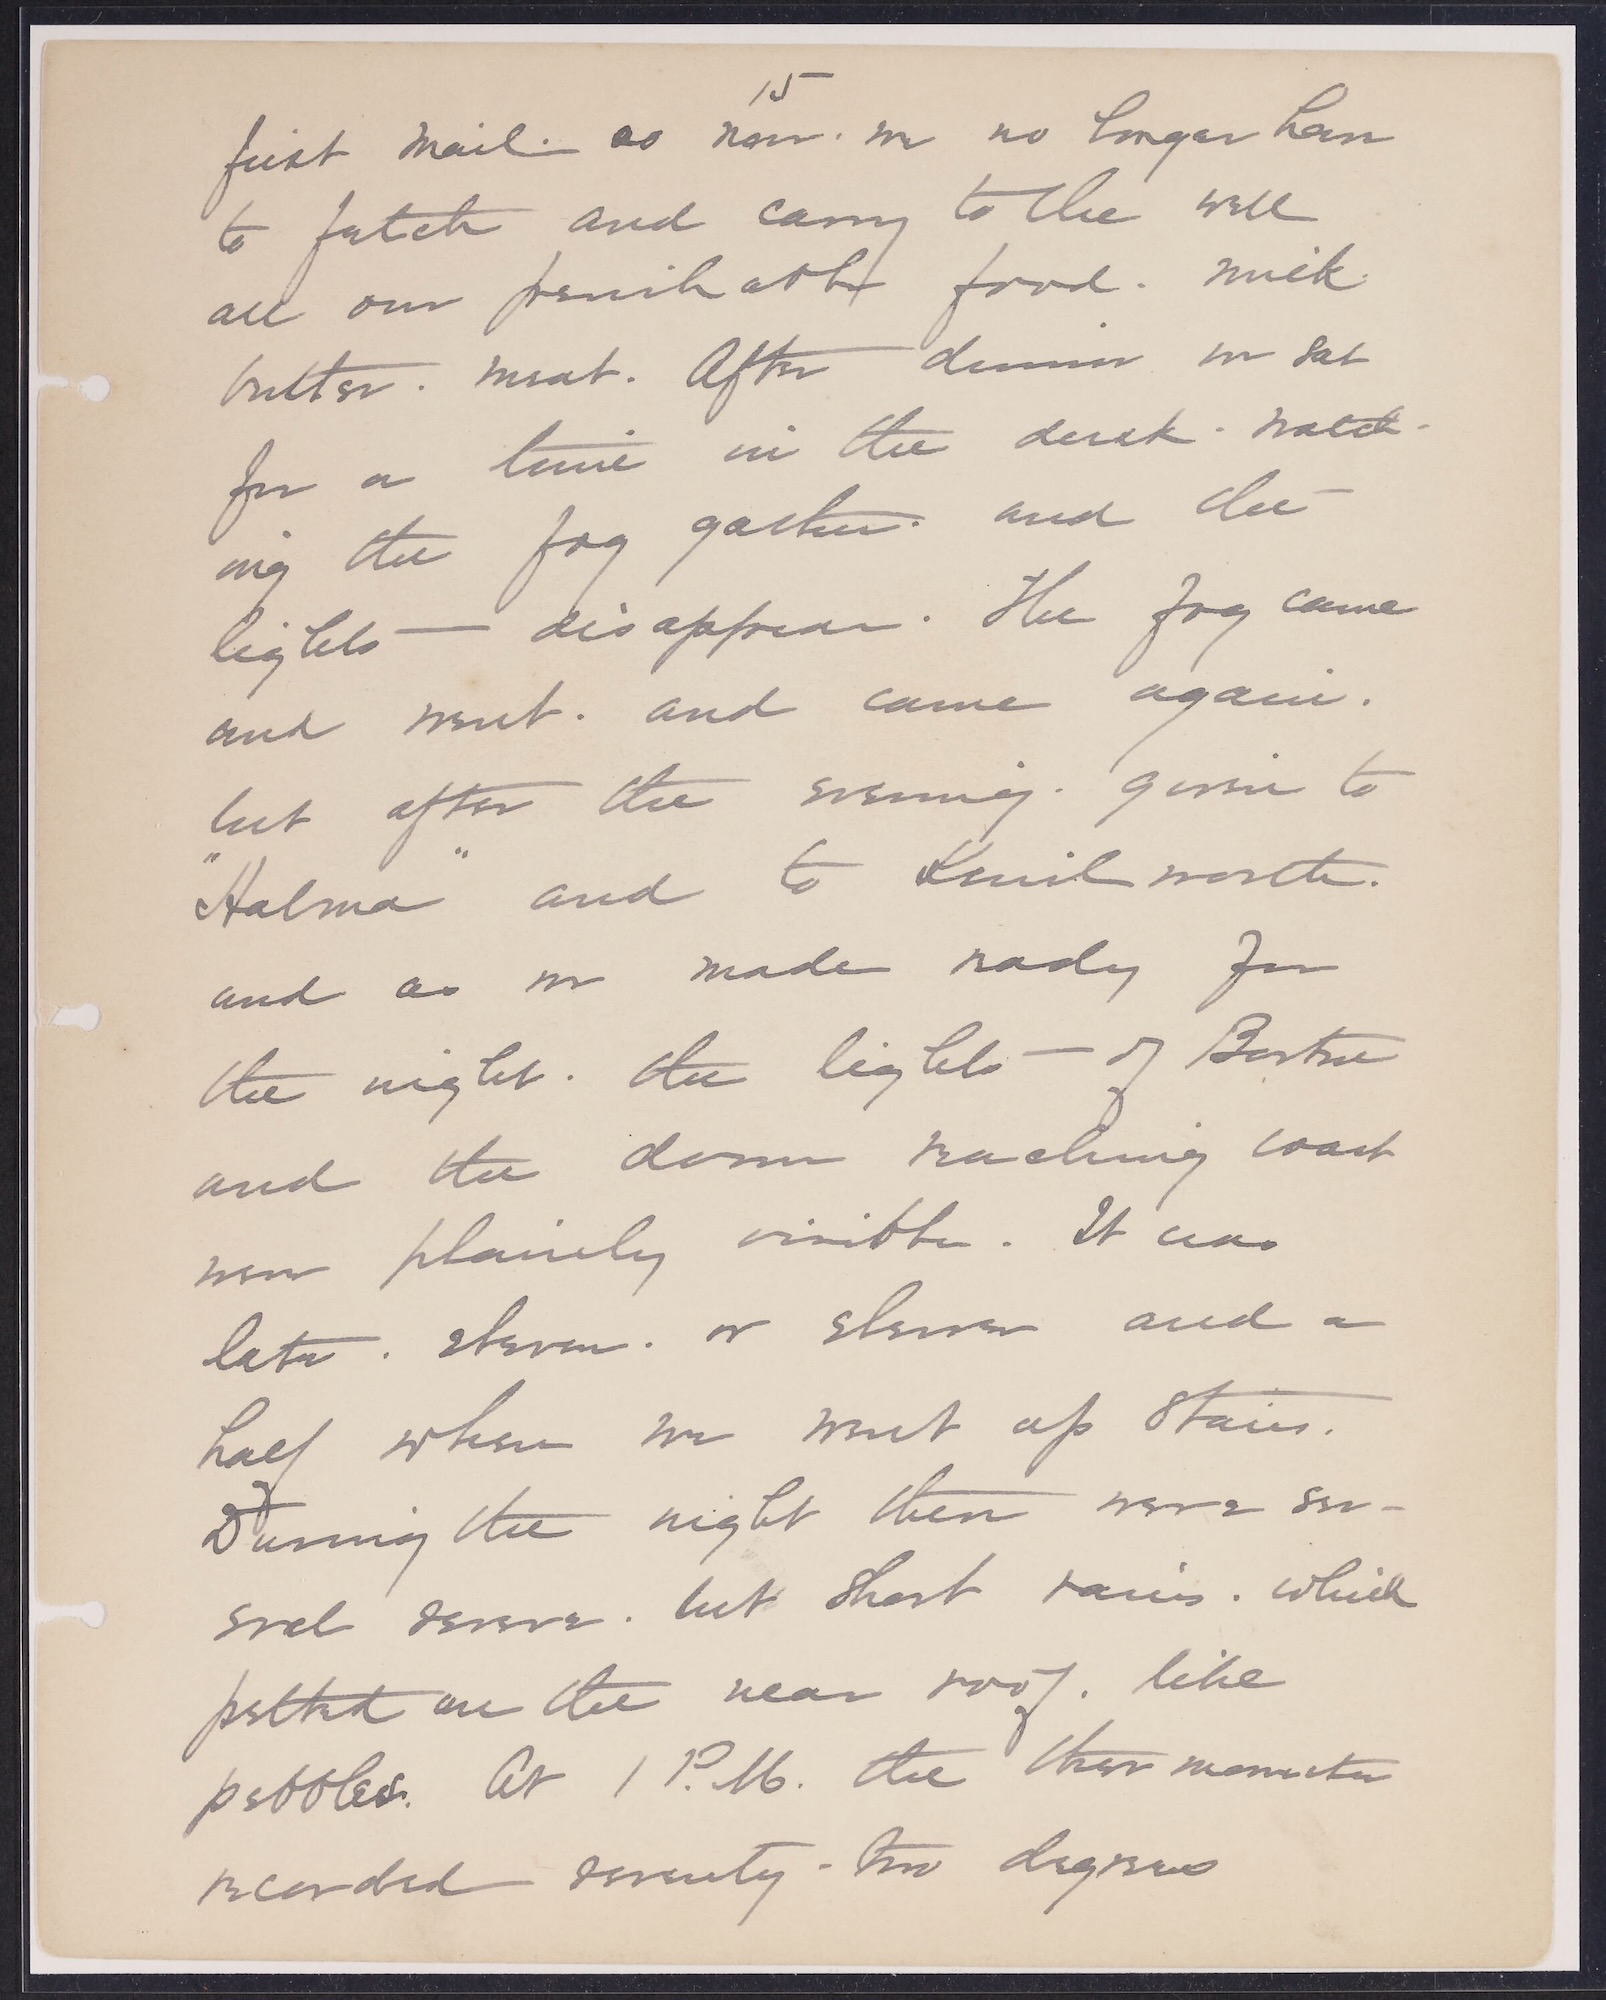 15
first mail. so now. we no longer have
to fetch and carry to the well
all our perishable food. milk.
butter. meat. After dinner we sat
for a time in the dusk. watch-
ing the fog gather. and the
lights disappear. The fog came
and went. and came again.
but after the evening. given to
"Halma" and to Kenilworth.
and as we made ready for
the night. the lights of Boston
and the down reaching coast
were plainly visible. It was
late. eleven. or eleven and a
half when we went up stairs.
During the night there were sev-
eral severe. but short rains. which
pelted on the near roof. like
pebbles. At 1 P.M. the thermometer
recorded seventy-two degrees